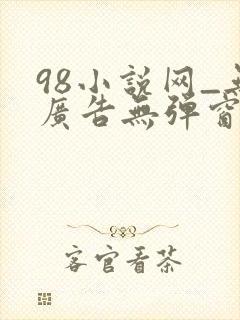 98小説网_
廣告無彈窗
客官看茶